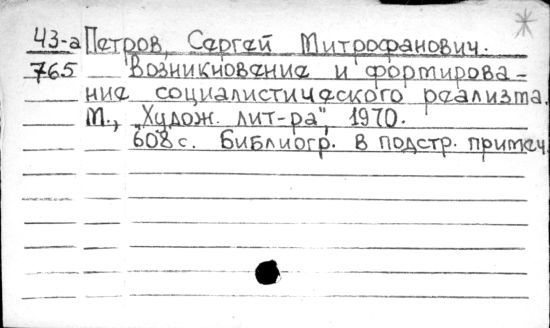 43-а Петров, Сергей Митрофанович.
765 Возникновение и формирова-
ние социалистического реализма.
М., "Худож. лит-ра", 1970.
608 с. Библиогр. в подстр. примеч.